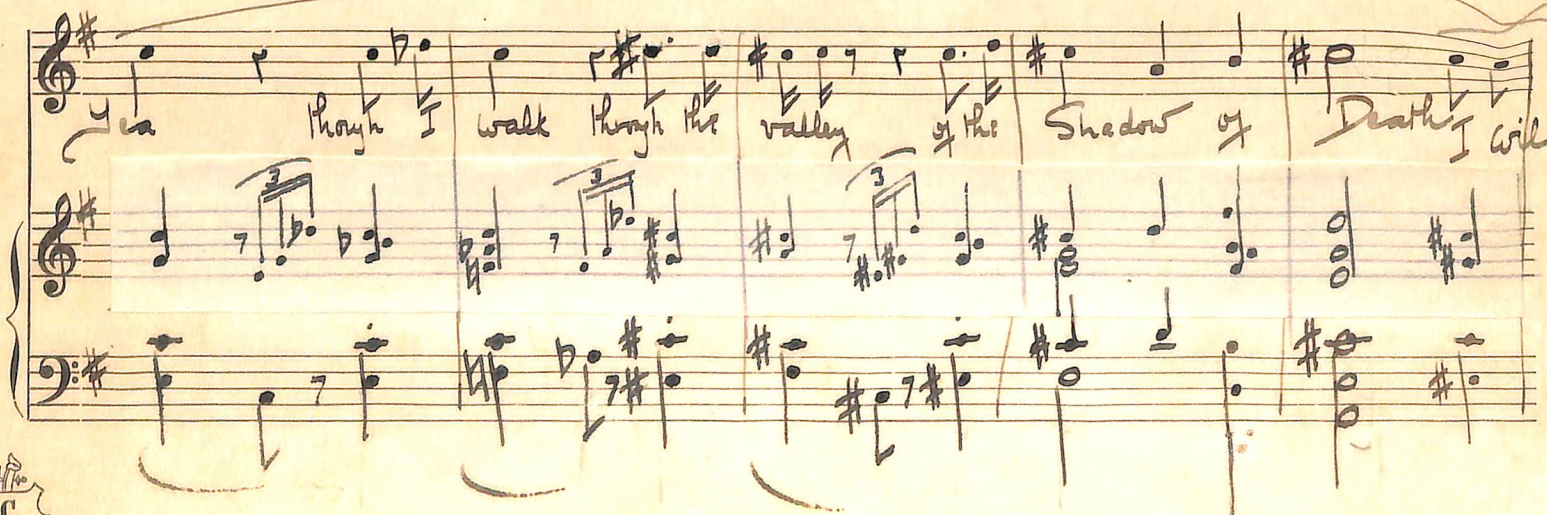 Yea though I walk through the valley of the Shadow of Death I wil
3 3 3